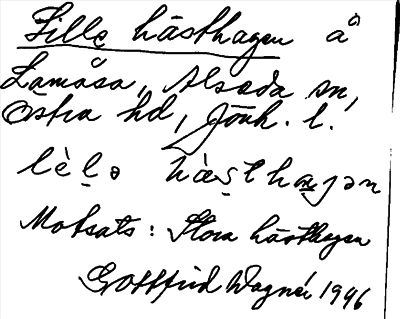 Lilla hästhagen å
Lamåsa, Alseda sn,
Östra hd, Jönk. l.
lèl̠ə hæ̀s̠thaɡən
Motsats: Stora hästhagen
Gottfrid Wagnér 1946